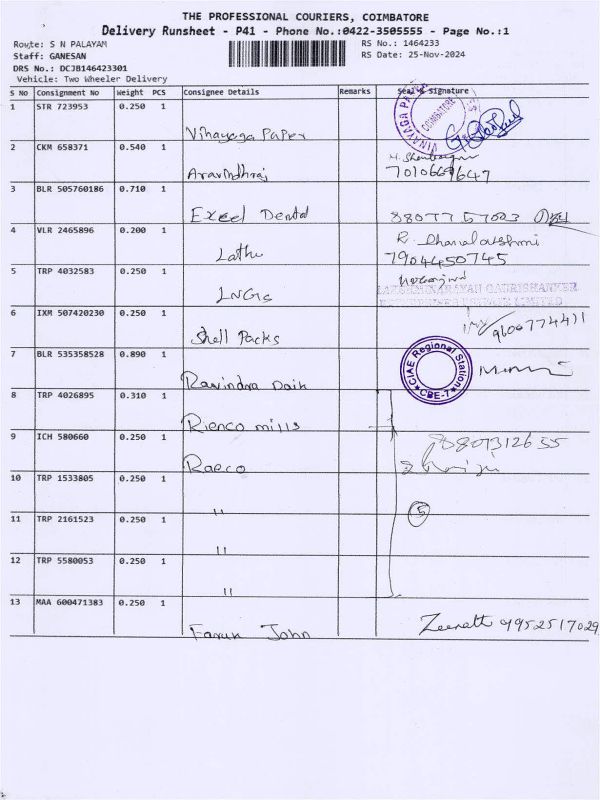 THE PROFESSIONAL COURIERS, COIMBATORE
Delivery Runsheet - P41 - Phone No.:0422-3505555 - Page No.:1
Route: S N PALAYAM
RS No.: 1464233
Staff: GANESAN
RS Date: 25-Nov-2024
DRS No.: DCJB146423301
Vehicle: Two Wheeler Delivery
S No Consignment No Weight PCS Consignee Details Remarks Seal & Signature
1 STR 723953 0.250 1 Vinayaga Paper
VINAYAGA PAPER COIMBATORE
2 CKM 658371 0.540 1 Aravindhraj
3 BLR 505760186 0.710 1 Excel Dental
4 VLR 2465896 0.200 1 Latha 7904450745
5 TRP 4032583 0.250 1 LNGS
LAKSHMINARAYAN GAURISHANKER
ENTERPRISES PRIVATE LIMITED
6 IXM 507420230 0.250 1 Shell Packs 9600774411
7 BLR 535358528 0.890 1 Ravindra Dain
CIAE Regional Station CBE-7
8 TRP 4026895 0.310 1 Rienco mills
9 ICH 580660 0.250 1 Raeco
10 TRP 1533805 0.250 1 "
5
11 TRP 2161523 0.250 1 "
12 TRP 5580053 0.250 1 "
13 MAA 600471383 0.250 1 John Zeenath 9952517029